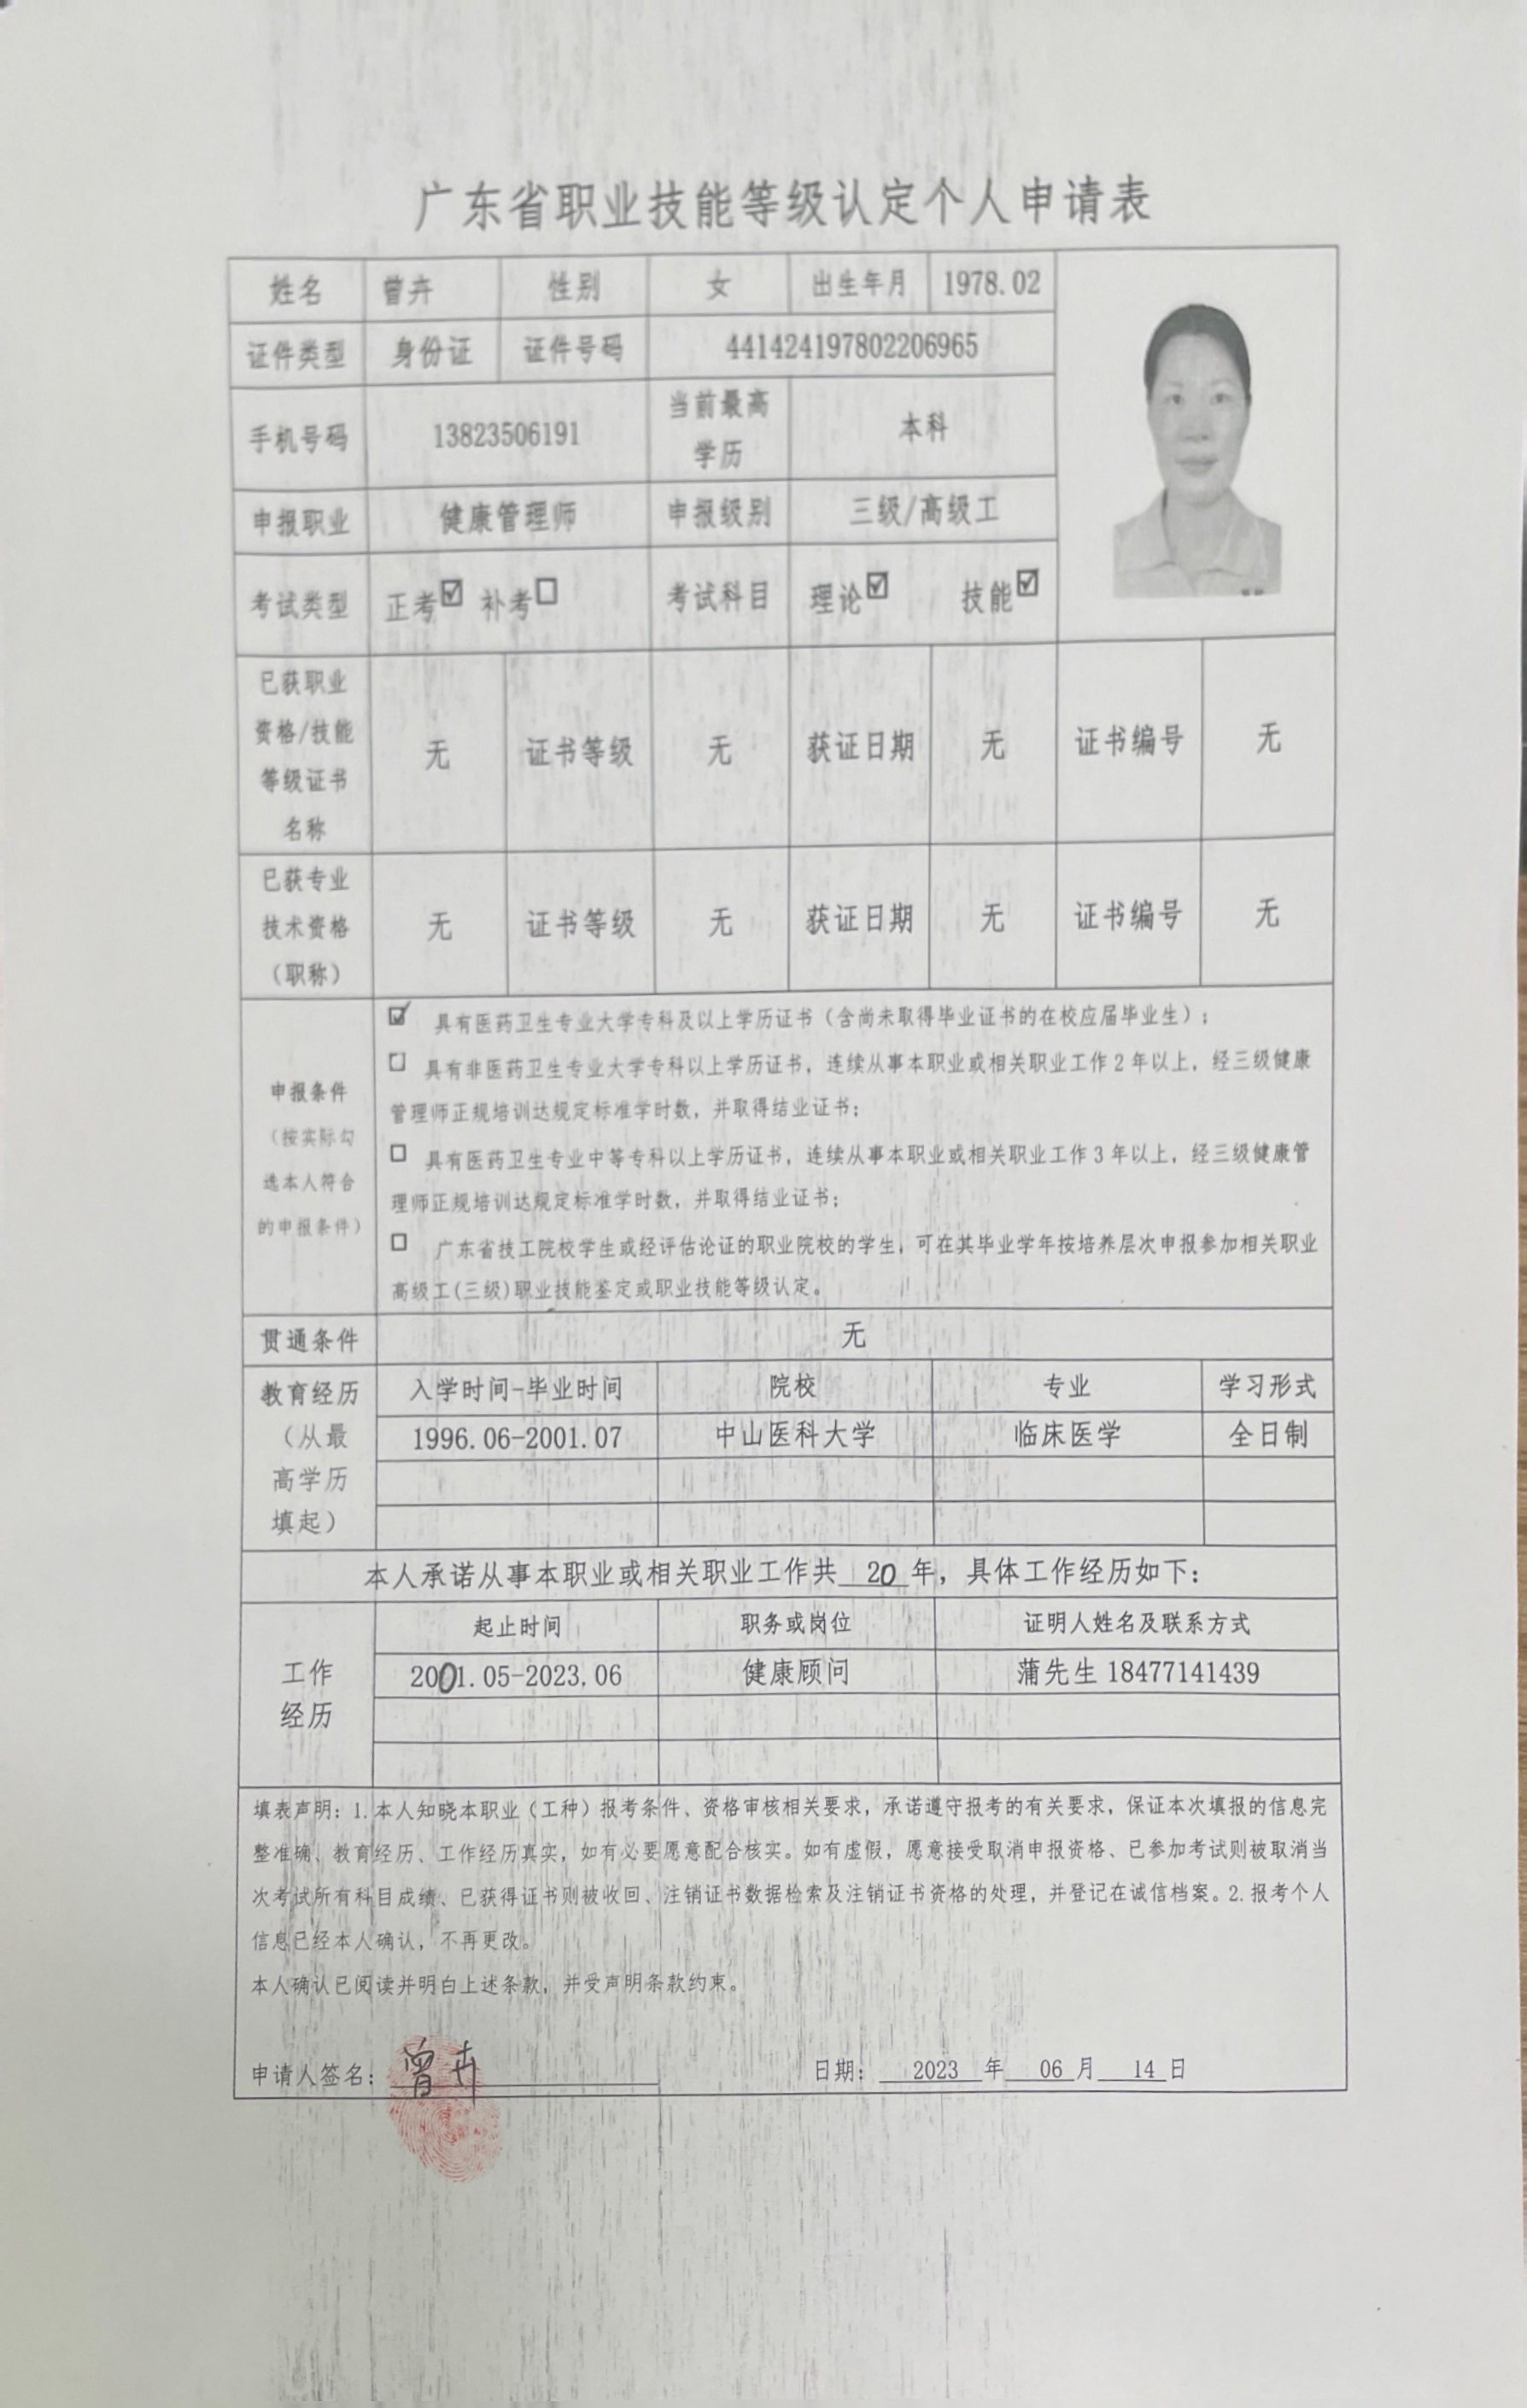 广东省职业技能等级认定个人申请表
姓名 曾卉 性别 女 出生年月 1978.02
证件类型 身份证 证件号码 441424197802206965
手机号码 13823506191 当前最高学历 本科
申报职业 健康管理师 申报级别 三级/高级工
考试类型 正考☑ 补考☐ 考试科目 理论☑ 技能☑
已获职业资格/技能等级证书名称 无 证书等级 无 获证日期 无 证书编号 无
已获专业技术资格（职称） 无 证书等级 无 获证日期 无 证书编号 无
申报条件（按实际勾选本人符合的申报条件）
☑ 具有医药卫生专业大学专科及以上学历证书（含尚未取得毕业证书的在校应届毕业生）；
☐ 具有非医药卫生专业大学专科以上学历证书，连续从事本职业或相关职业工作2年以上，经三级健康
管理师正规培训达规定标准学时数，并取得结业证书；
☐ 具有医药卫生专业中等专科以上学历证书，连续从事本职业或相关职业工作3年以上，经三级健康管
理师正规培训达规定标准学时数，并取得结业证书；
☐ 广东省技工院校学生或经评估论证的职业院校的学生，可在其毕业学年按培养层次申报参加相关职业
高级工(三级)职业技能鉴定或职业技能等级认定。
贯通条件 无
教育经历（从最高学历填起） 入学时间-毕业时间 院校 专业 学习形式
1996.06-2001.07 中山医科大学 临床医学 全日制
本人承诺从事本职业或相关职业工作共 20 年，具体工作经历如下：
工作经历 起止时间 职务或岗位 证明人姓名及联系方式
2001.05-2023.06 健康顾问 蒲先生 18477141439
填表声明：1.本人知晓本职业（工种）报考条件、资格审核相关要求，承诺遵守报考的有关要求，保证本次填报的信息完
整准确、教育经历、工作经历真实，如有必要愿意配合核实。如有虚假，愿意接受取消申报资格、已参加考试则被取消当
次考试所有科目成绩、已获得证书则被收回、注销证书数据检索及注销证书资格的处理，并登记在诚信档案。2.报考个人
信息已经本人确认，不再更改。
本人确认已阅读并明白上述条款，并受声明条款约束。
申请人签名：曾卉 日期： 2023 年 06 月 14 日